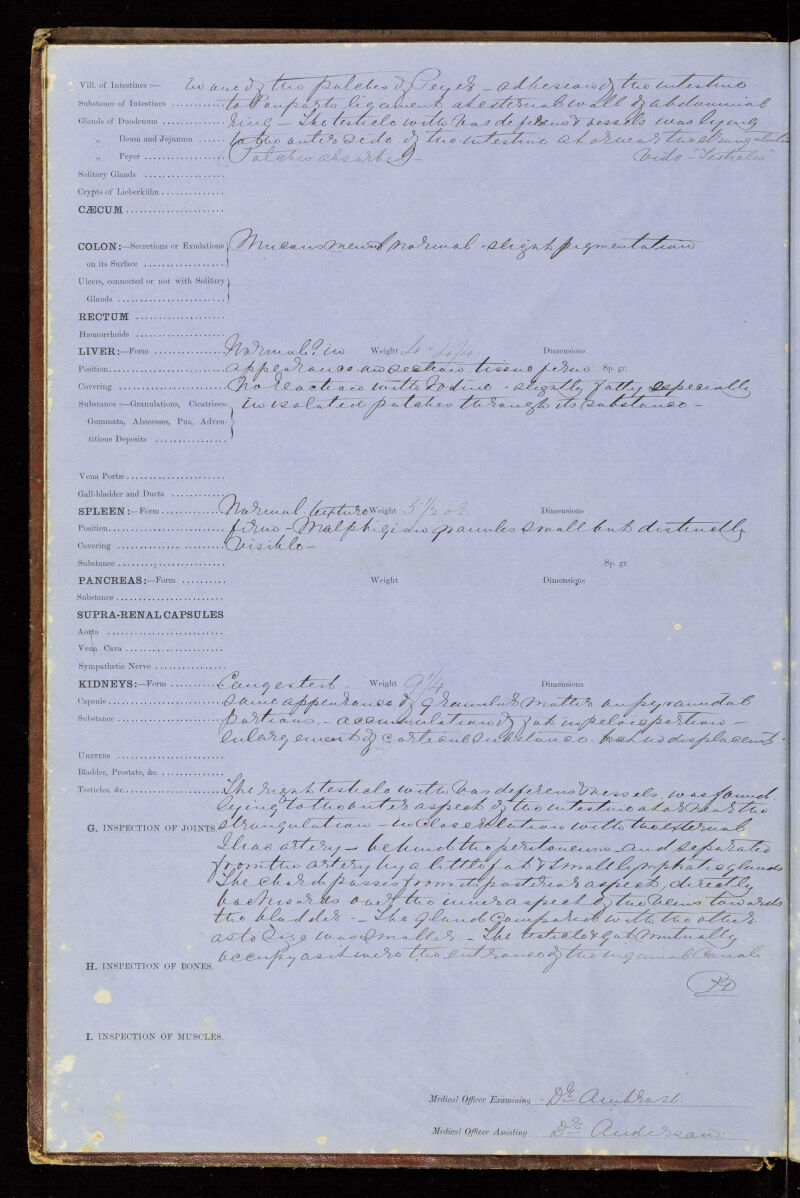 Vill. of Intestines :— in one of the patches of Peyer – adhesion of the intestine
Substance of Intestines to Pouparts ligament at external wall of abdominal
Glands of Duodenum ring – The testicle with Vas deferens & vessels was lying
„ Ileum and Jejunum to the outer side of the intestine at or near the strangulation
„ Peyer Patches absorbed – Vide "Testicles"
Solitary Glands
Crypts of Lieberkühn
CÆCUM
COLON:—Secretions or Exudations Mucous memb normal – slight pigmentation
on its Surface
Ulcers, connected or not with Solitary
Glands
RECTUM
Hæmorrhoids
LIVER:—Form Normal? in Weight Dimensions
Position appearance on section tissue firm Sp. gr.
Covering No reaction with Iodine – slightly fatty especially
Substance:—Granulations, Cicatrices, in isolated patches through its substance –
Gummata, Abscesses, Pus, Adven-
titious Deposits
Vena Portæ
Gall-bladder and Ducts
SPLEEN:—Form Normal, texture Weight 5 1/2 oz Dimensions
Position firm – Malphigian granules small but distinctly
Covering Visible –
Substance Sp. gr.
PANCREAS:—Form Weight Dimensions
Substance
SUPRA-RENAL CAPSULES
Aorta
Vena Cava
Sympathetic Nerve
KIDNEYS:—Form Congested Weight 9 1/4 Dimensions
Capsule some appearance of granular matter on pyramidal
Substance portions. – accumulation of fat in pelvic portion –
enlargement of cortical substance
Ureters
Bladder, Prostate, &c.
Testicles, &c. The right testicle with Vas deferens & vessels was found
lying to the outer aspect of the intestine at or near the
G. INSPECTION OF JOINTS. strangulation – in close relation with the external
Iliac artery – behind the peritoneum and separated
from the artery by a little fat & small lymphatic glands
The chord passes from its posterior aspect, directly
backwards over the inner aspect of the veins towards
the bladder. – The gland compared with the other
as to size was smaller – The testicle & gut mutually
occupy as it were the entrance of the inguinal canal
H. INSPECTION OF BONES.
I. INSPECTION OF MUSCLES.
Medical Officer Examining Dr.
Medical Officer Assisting Dr. Anderson